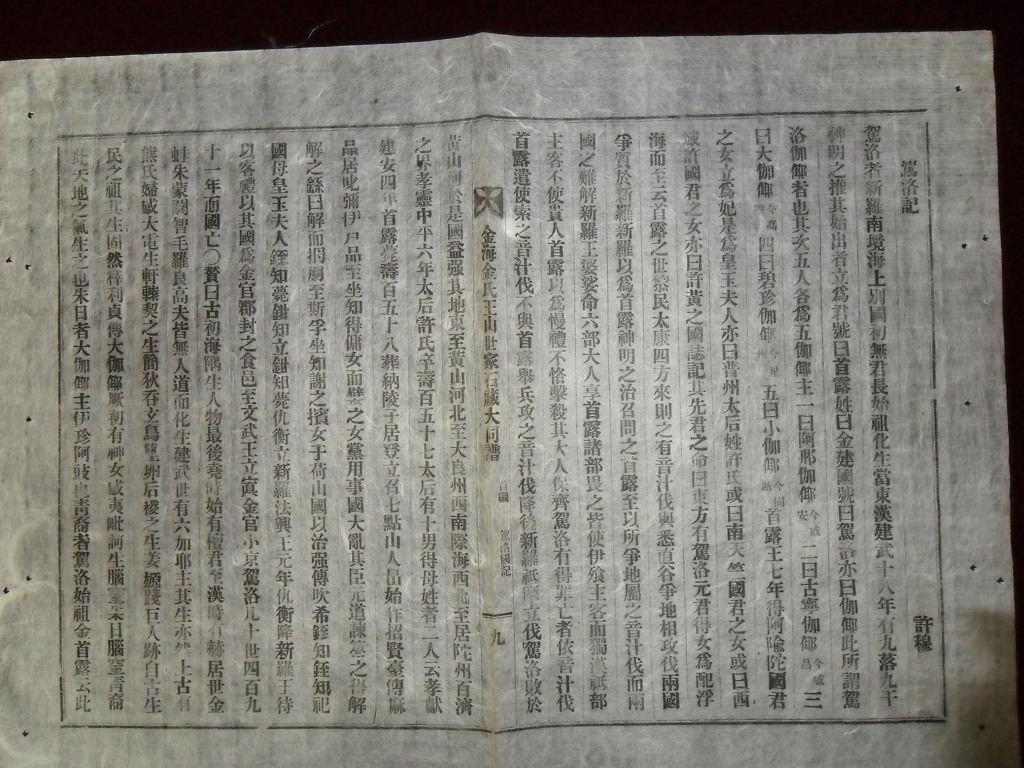 駕洛記
許穆
駕洛者新羅南境海上別國初無君長始祖化生當東漢建武十八年有九落九干
神明之推其始出者立爲君號曰首露姓曰金建國號曰駕洛亦曰伽倻此所謂駕
洛伽倻者也其次五人各爲五伽倻主一曰阿那伽倻今咸安二曰古寧伽倻今咸昌三
曰大伽倻今高 四曰碧珍伽倻今星州五曰小伽倻今固城首露王七年得阿隃陀國君
之女立爲妃是爲皇玉夫人亦曰普州太后姓許氏或曰南天竺國君之女或曰西
域許國君之女亦曰許黃之國誌記其先君之命曰東方有駕洛元君得女爲配浮
海而至云首露之世 民太康四方來則之有音汁伐與悉直谷爭地相攻伐兩國
爭質於新羅新羅以爲首露神明之治召問之首露至以所爭地屬之音汁伐而兩
國之難解新羅王婆娑命六部大人享首露諸部畏之皆使伊飡主客而獨漢祗部
主客不使貴人首露以爲慢禮不恪擊殺其大人保齊駕洛有得罪亡者依音汁伐
首露遣使索之音汁伐不與首露擧兵攻之音汁伐降後新羅祗摩立伐駕洛敗於
金海金氏王山世家石誠大同譜 首編 駕洛國記 九
黃山 於是國益强其地東至黃山河北至大良州西南際海西北至居陀州百濟
之界孝靈中平六年太后許氏卒壽百五十七太后有十男得母姓者二人云孝獻
建安四年首露薨壽百五十八葬納陵子居登立召七點山人 始作招賢臺傳麻
品居叱彌伊尸品至坐知得傭女而嬖之女黨用事國大亂其臣元道諫 之得解
解之繇曰解而拇朋至斯孚坐知謝之擯女于荷山國以治强傳吹希銍知銍知祀
國母皇玉夫人銍知薨鉗知立鉗知薨仇衡立新羅法興王元年仇衡降新羅王待
以客禮以其國爲金官郡封之食邑至文武王立寘金官小京駕洛凡十世四百九
十一年而國亡○贊曰古初海隅生人物最後堯時始有檀君至漢時有赫居世金
蛙朱蒙閼智毛羅良高夫皆無人道而化生建武世有六加耶主其生亦 上古有
熊氏婦感大電生軒轅契之生簡狄呑玄鳥墮卵后稷之生姜嫄踐巨人跡自古生
民之祖其生固然釋利貞傳大伽倻厥初有神女感夷毗訶生腦窒朱日腦窒靑裔
此天地之氣生之也朱日者大伽倻主伊珍阿豉也靑裔者駕洛始祖金首露云此